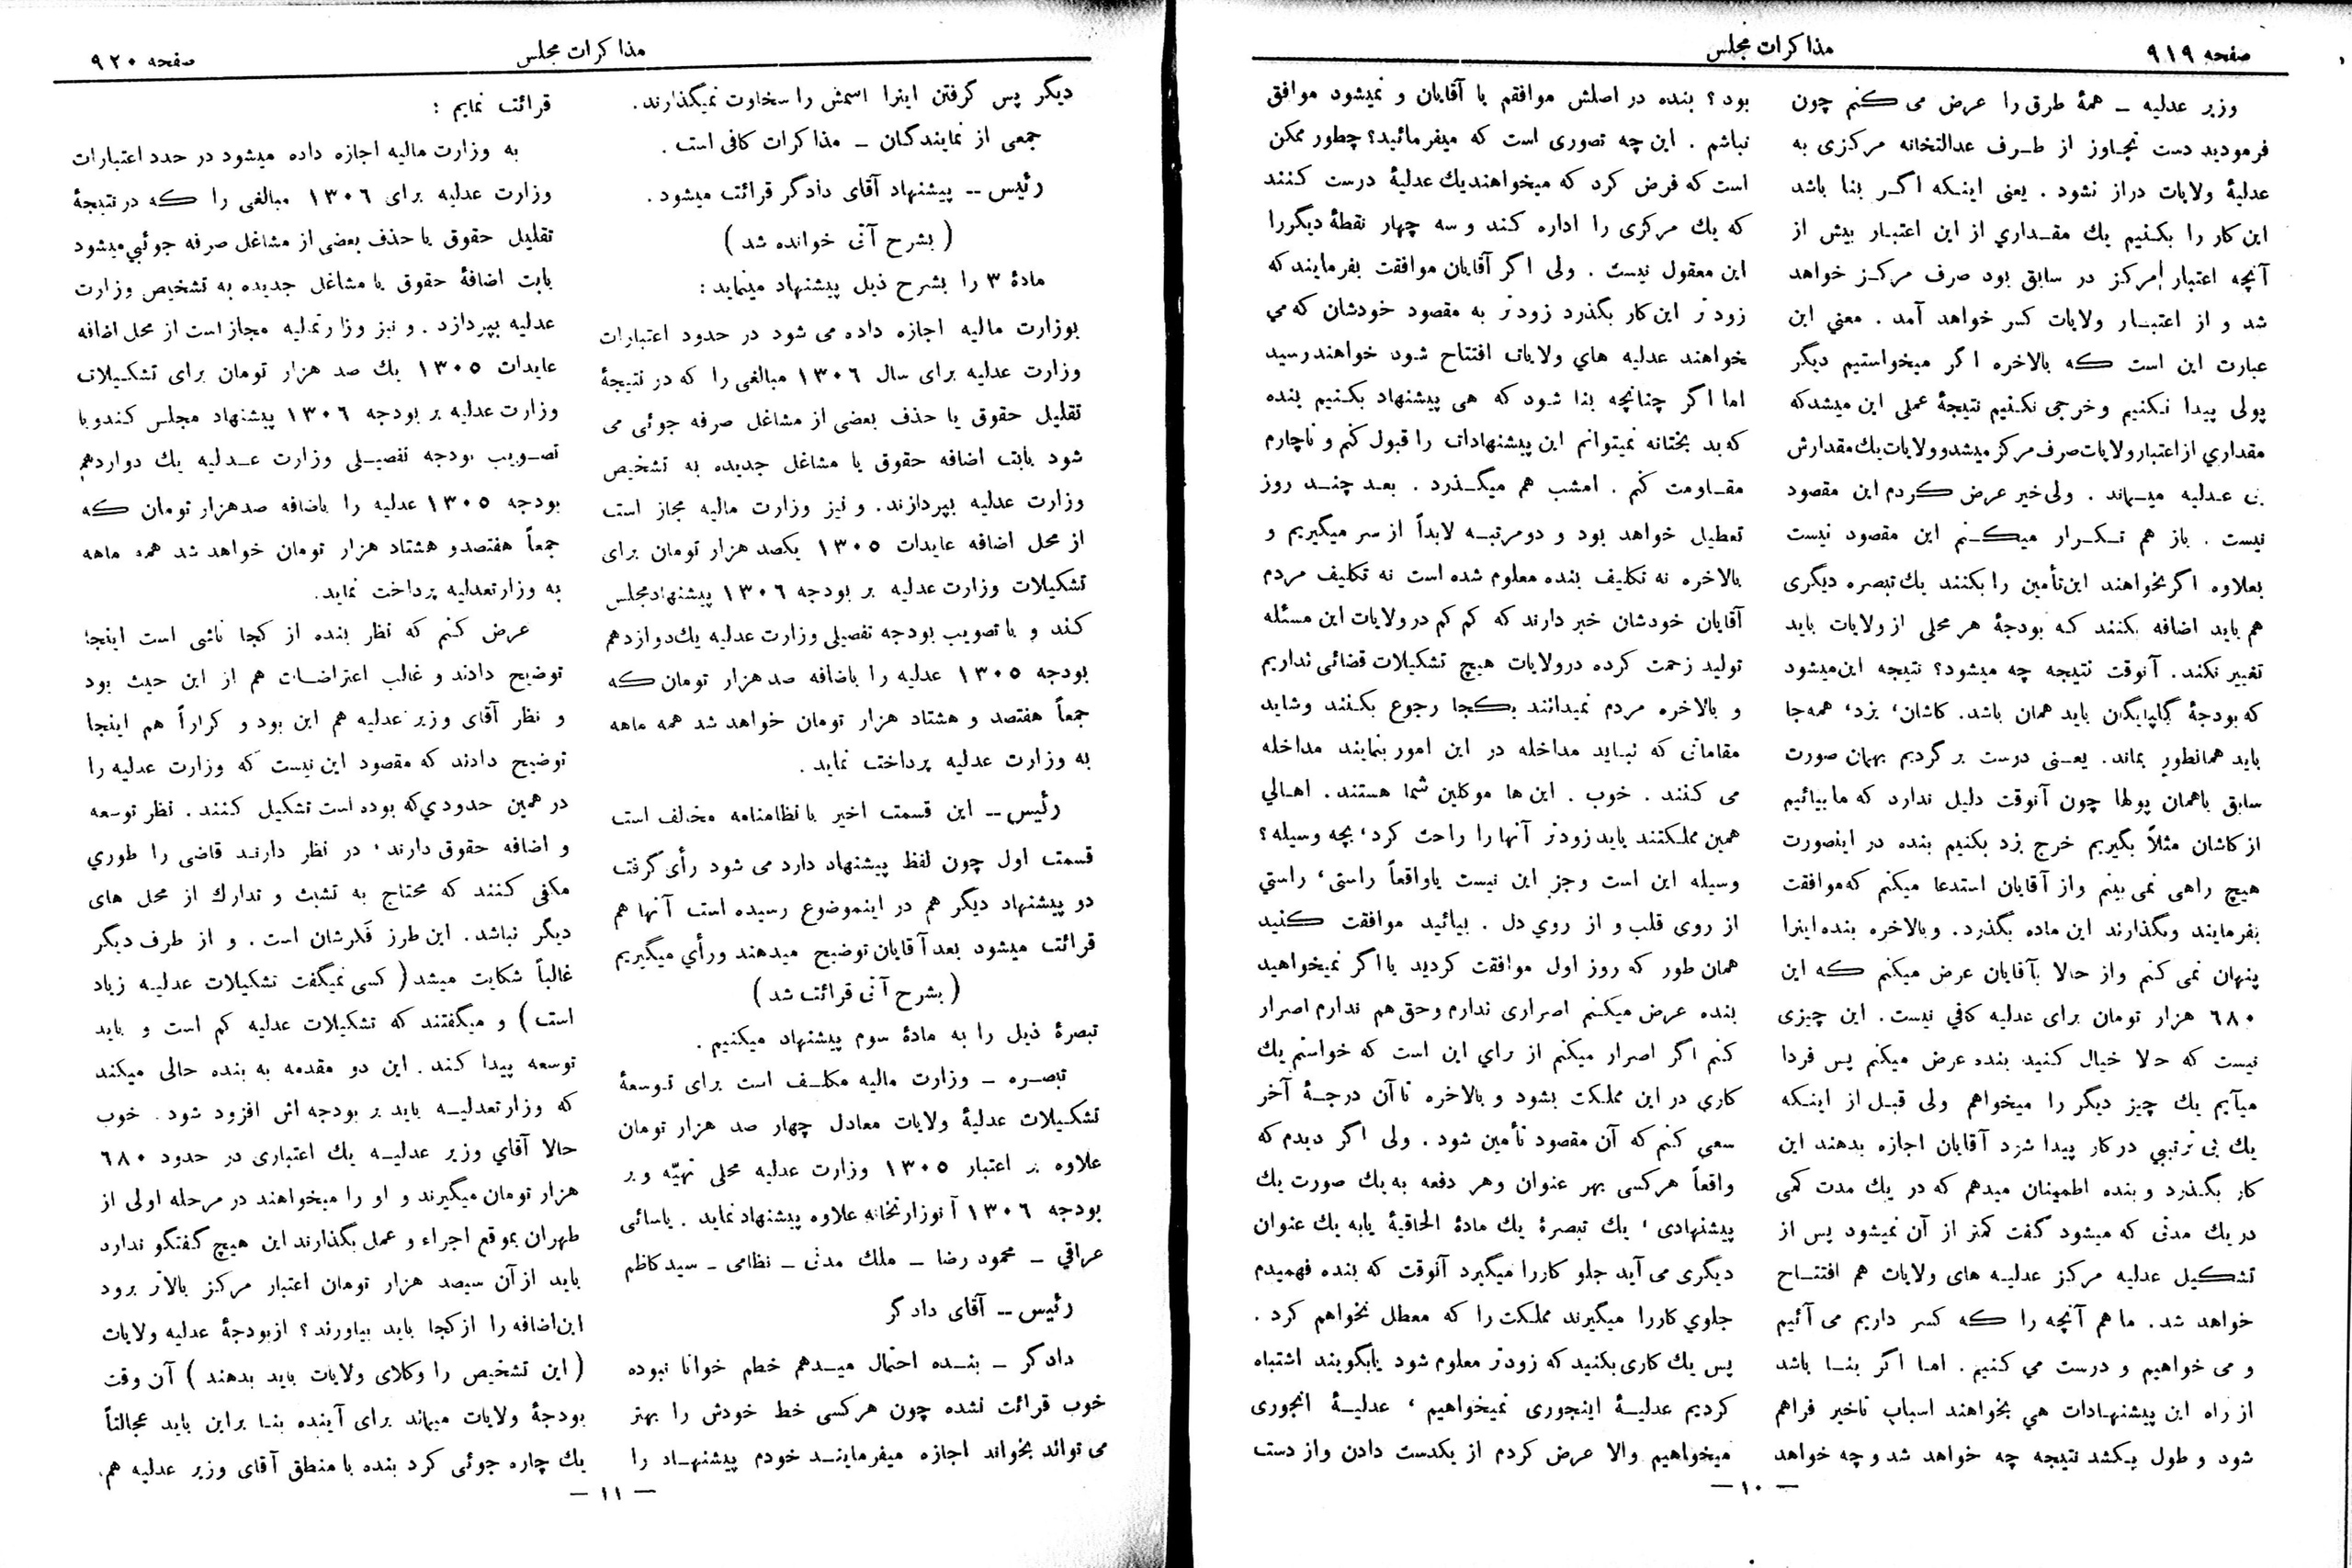 صفحه ۹۱۹
مذاکرات مجلس
وزیر عدلیه ــ همهٔ طرق را عرض می کنم چون
فرمودید دست تجاوز از طرف عدالتخانه مرکزی به
عدلیهٔ ولایات دراز نشود . یعنی اینکه اگر بنا باشد
این کار را بکنیم یك مقداري از این اعتبار بیش از
آنچه اعتبار مرکز در سابق بود صرف مرکز خواهد
شد و از اعتبار ولایات کسر خواهد آمد . معني این
عبارت این است که بالاخره اگر میخواستیم دیگر
پولی پیدا نکنیم و خرجی نکنیم نتیجهٔ عملی این میشد که
مقداري از اعتبار ولایات صرف مرکز میشد و ولایات یك مقدارش
بی عدلیه میماند . ولی خیر عرض کردم این مقصود
نیست . باز هم تکرار میکنم این مقصود نیست
بعلاوه اگر بخواهند این تأمین را بکنند یك تبصره دیگری
هم باید اضافه بکنند که بودجهٔ هر محلی از ولایات باید
تغییر نکند . آنوقت نتیجه چه میشود؟ نتیجه این میشود
که بودجهٔ گلپایگان باید همان باشد. کاشان، یزد، همه جا
باید همانطور بماند. یعنی درست بر گردیم بهمان صورت
سابق با همان پولها چون آنوقت دلیل ندارد که ما بیائیم
از کاشان مثلاً بگیریم خرج یزد بکنیم بنده در اینصورت
هیچ راهی نمی بینم و از آقایان استدعا میکنم که موافقت
بفرمایند و بگذارند این ماده بگذرد. و بالاخره بنده اینرا
پنهان نمی کنم و از حالا بآقایان عرض میکنم که این
۶۸۰ هزار تومان برای عدلیه کافي نیست . این چیزی
نیست که حالا خیال کنید بنده عرض میکنم پس فردا
میآیم یك چیز دیگر را میخواهم ولی قبل از اینکه
یك بی ترتیبي در کار پیدا شود آقایان اجازه بدهند این
کار بگذرد و بنده اطمینان میدهم که در یك مدت کمی
در یك مدتی که میشود گفت کمتر از آن نمیشود پس از
تشکیل عدلیه مرکز عدلیه های ولایات هم افتتاح
خواهد شد . ما هم آنچه را که کسر داریم می آئیم
و می خواهیم و درست مي کنیم . اما اگر بنا باشد
از راه این پیشنهادات هي بخواهند اسباب تاخیر فراهم
شود و طول بکشد نتیجه چه خواهد شد و چه خواهد
بود ؟ بنده در اصلش موافقم با آقایان و نمیشود موافق
نباشم . این چه تصوری است که میفرمائید؟ چطور ممکن
است که فرض کرد که میخواهند یك عدلیهٔ درست کنند
که یك مرکزی را اداره کند و سه چهار نقطهٔ دیگر را
این معقول نیست . ولی اگر آقایان موافقت بفرمایند که
زود تر این کار بگذرد زود تر به مقصود خودشان که مي
خواهند عدلیه هاي ولایات افتتاح شود خواهند رسید
اما اگر چنانچه بنا شود که هی پیشنهاد بکنیم بنده
که بد بختانه نمیتوانم این پیشنهادات را قبول کنم و ناچارم
مقاومت کنم . امشب هم میگذرد . بعد چند روز
تعطیل خواهد بود و دو مرتبه لابداً از سر میگیریم و
بالاخره نه تکلیف بنده معلوم شده است نه تکلیف مردم
آقایان خودشان خبر دارند که کم کم در ولایات این مسئله
تولید زحمت کرده در ولایات هیچ تشکیلات قضائی نداریم
و بالاخره مردم نمیدانند بکجا رجوع بکنند و شاید
مقاماتی که نباید مداخله در این امور بنمایند مداخله
می کنند . خوب . این ها موکلین شما هستند . اهالي
همین مملکتند باید زود تر آنها را راحت کرد، بچه وسیله؟
وسیله این است و جز این نیست یا واقعاً راستی، راستي
از روی قلب و از روي دل . بیائید موافقت کنید
همان طور که روز اول موافقت کردید یا اگر نمیخواهید
بنده عرض میکنم اصراری ندارم و حق هم ندارم اصرار
کنم اگر اصرار میکنم از رای این است که خواستم یك
کاري در این مملکت بشود و بالاخره تا آن درجهٔ آخر
سعی کنم که آن مقصود تأمین شود . ولی اگر دیدم که
واقعاً هر کسی بهر عنوان و هر دفعه به یك صورت یك
پیشنهادی، یك تبصرهٔ یك مادهٔ الحاقیهٔ یا به یك عنوان
دیگری می آید جلو کار را میگیرد آنوقت که بنده فهمیدم
جلوي کار را میگیرند مملکت را که معطل نخواهم کرد .
پس یك کاری بکنید که زود تر معلوم شود یا بگویند اشتباه
کردیم عدلیهٔ اینجوری نمیخواهیم، عدلیهٔ انجوری
میخواهیم والا عرض کردم از یکدست دادن و از دست
ــ ۱۰ ــ
مذاکرات مجلس
صفحه ۹۲۰
دیگر پس گرفتن اینرا اسمش را سخاوت نمیگذارند.
جمعی از نمایندگان ــ مذاکرات کافی است .
رئیس ــ پیشنهاد آقای دادگر قرائت میشود .
( بشرح آتی خوانده شد )
مادهٔ ۳ را بشرح ذیل پیشنهاد مینماید :
بوزارت مالیه اجازه داده می شود در حدود اعتبارات
وزارت عدلیه برای سال ۱۳۰۶ مبالغی را که در نتیجهٔ
تقلیل حقوق یا حذف بعضی از مشاغل صرفه جوئی می
شود بابت اضافه حقوق یا مشاغل جدیده به تشخیص
وزارت عدلیه بپردازند. و نیز وزارت مالیه مجاز است
از محل اضافه عایدات ۱۳۰۵ یکصد هزار تومان برای
تشکیلات وزارت عدلیه بر بودجه ۱۳۰۶ پیشنهاد مجلس
کند و با تصویب بودجه تفصیلی وزارت عدلیه یك دوازدهم
بودجه ۱۳۰۵ عدلیه را باضافه صد هزار تومان که
جمعاً هفتصد و هشتاد هزار تومان خواهد شد همه ماهه
به وزارت عدلیه پرداخت نماید .
رئیس ــ این قسمت اخیر با نظامنامه مخالف است
قسمت اول چون لفظ پیشنهاد دارد می شود رأی گرفت
دو پیشنهاد دیگر هم در اینموضوع رسیده است آنها هم
قرائت میشود بعد آقایان توضیح میدهند و رأي میگیریم
( بشرح آتی قرائت شد )
تبصرهٔ ذیل را به مادهٔ سوم پیشنهاد میکنیم .
تبصره ــ وزارت مالیه مکلف است برای توسعهٔ
تشکیلات عدلیهٔ ولایات معادل چهار صد هزار تومان
علاوه بر اعتبار ۱۳۰۵ وزارت عدلیه محلی تهیّه و بر
بودجه ۱۳۰۶ آنوزارتخانه علاوه پیشنهاد نماید . یاسائی
عراقي ــ محمود رضا ــ ملك مدنی ــ نظامی ــ سید کاظم
رئیس ــ آقای دادگر
دادگر ــ بنده احتمال میدهم خطم خوانا نبوده
خوب قرائت نشده چون هر کسی خط خودش را بهتر
می تواند بخواند اجازه میفرمایند خودم پیشنهاد را
قرائت نمایم :
به وزارت مالیه اجازه داده میشود در حدد اعتبارات
وزارت عدلیه برای ۱۳۰۶ مبالغی را که در نتیجهٔ
تقلیل حقوق یا حذف بعضی از مشاغل صرفه جوئي میشود
بابت اضافهٔ حقوق یا مشاغل جدیده به تشخیص وزارت
عدلیه بپردازد . و نیز وزارتمالیه مجاز است از محل اضافه
عایدات ۱۳۰۵ یك صد هزار تومان برای تشکیلات
وزارت عدلیه بر بودجه ۱۳۰۶ پیشنهاد مجلس کند و با
تصویب بودجه تفصیلی وزارت عدلیه یك دواردهم
بودجه ۱۳۰۵ عدلیه را باضافه صد هزار تومان که
جمعاً هفتصد و هشتاد هزار تومان خواهد شد همه ماهه
به وزارتعدلیه پرداخت نماید.
عرض کنم که نظر بنده از کجا ناشی است اینجا
توضیح دادند و غالب اعتراضات هم از این حیث بود
و نظر آقای وزیر عدلیه هم این بود و کراراً هم اینجا
توضیح دادند که مقصود این نیست که وزارت عدلیه را
در همین حدودي که بوده است تشکیل کنند . نظر توسعه
و اضافه حقوق دارند، در نظر دارند قاضی را طوري
مکفی کنند که محتاج به تشبث و تدارك از محل های
دیگر نباشد . این طرز فکرشان است . و از طرف دیگر
غالباً شکایت میشد ( کسی نمیگفت تشکیلات عدلیه زیاد
است ) و میگفتند که تشکیلات عدلیه کم است و باید
توسعه پیدا کند . این دو مقدمه به بنده حالی میکند
که وزارتعدلیه باید بر بودجه اش افزود شود . خوب
حالا آقاي وزیر عدلیه یك اعتباری در حدود ۶۸۰
هزار تومان میگیرند و او را میخواهند در مرحله اولی از
طهران بموقع اجراء و عمل بگذارند این هیچ گفتگو ندارد
باید از آن سیصد هزار تومان اعتبار مرکز بالاتر برود
این اضافه را از کجا باید بیاورند ؟ از بودجهٔ عدلیه ولایات
( این تشخیص را وکلای ولایات باید بدهند ) آن وقت
بودجهٔ ولایات میماند برای آینده بنا براین باید عجالتاً
یك چاره جوئی کرد بنده با منطق آقای وزیر عدلیه هم
ــ ۱۱ ــ